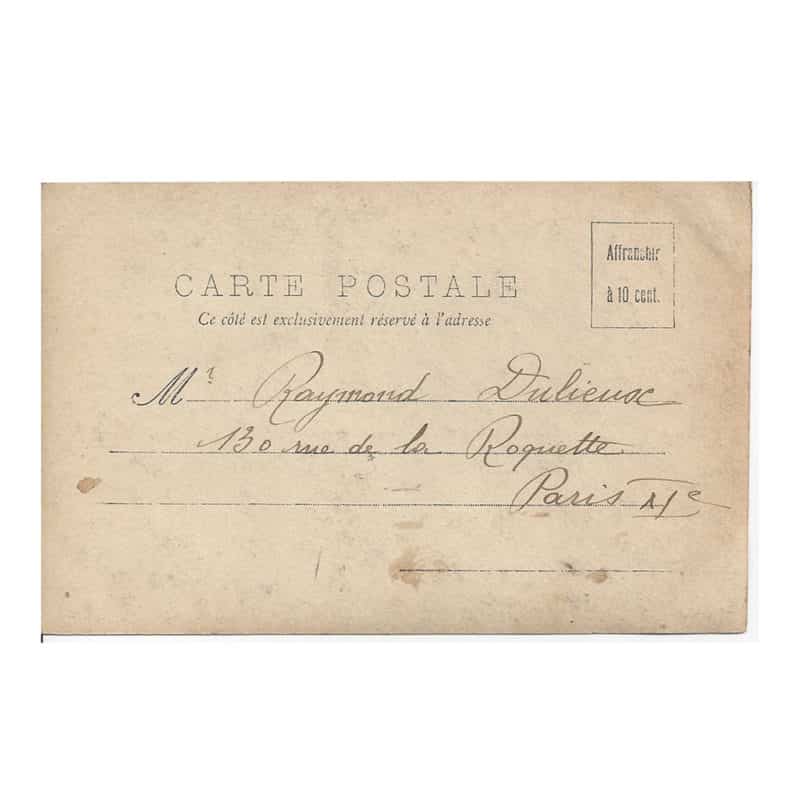 Affranchir
à 10 cent.
CARTE POSTALE
Ce côté est exclusivement réservé à l'adresse
Mr Raymond Dulieux
130 rue de la Roquette
Paris XIe